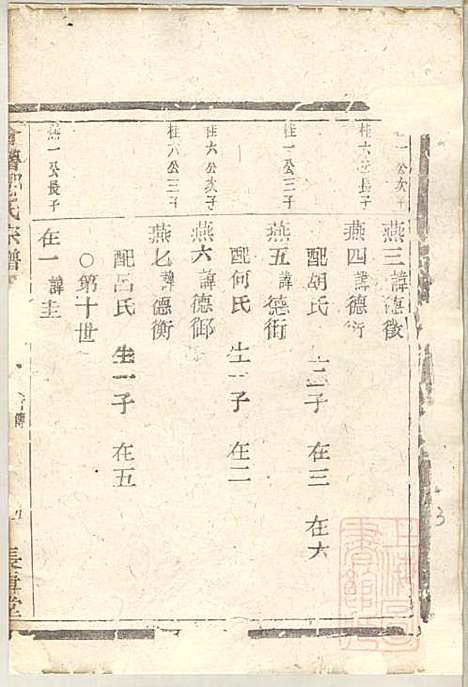 公次子
燕三諱德徵
桂六公長子
燕四諱德衍
配胡氏 生二子 在三 在六
桂一公三子
燕五諱德銜
配何氏 生一子 在二
桂六公次子
燕六諱德御
桂六公三子
燕七諱德衡
配呂氏 生一子 在五
○第十世
燕一公長子
在一諱圭
氏宗譜
傳
堂
43